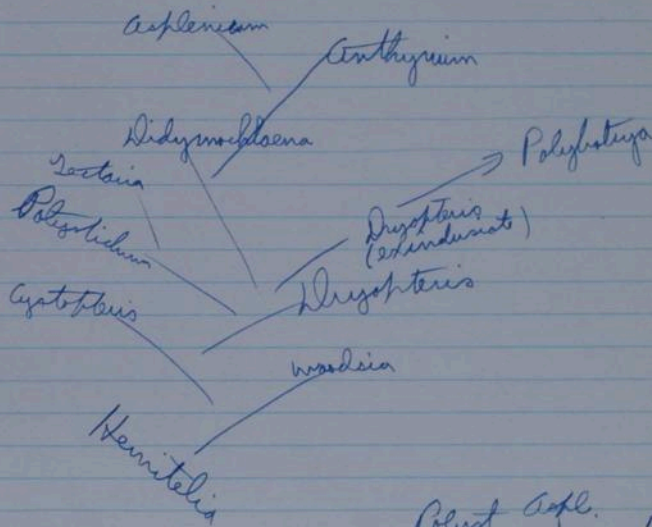 Asplenium
Anthyrium
Didymochlaena
Polybotrya
Tectaria
Polystichum
Dryopteris
(exindusiate)
Cystopteris
Dryopteris
Woodsia
Hemitelia
Polyst Aspl.